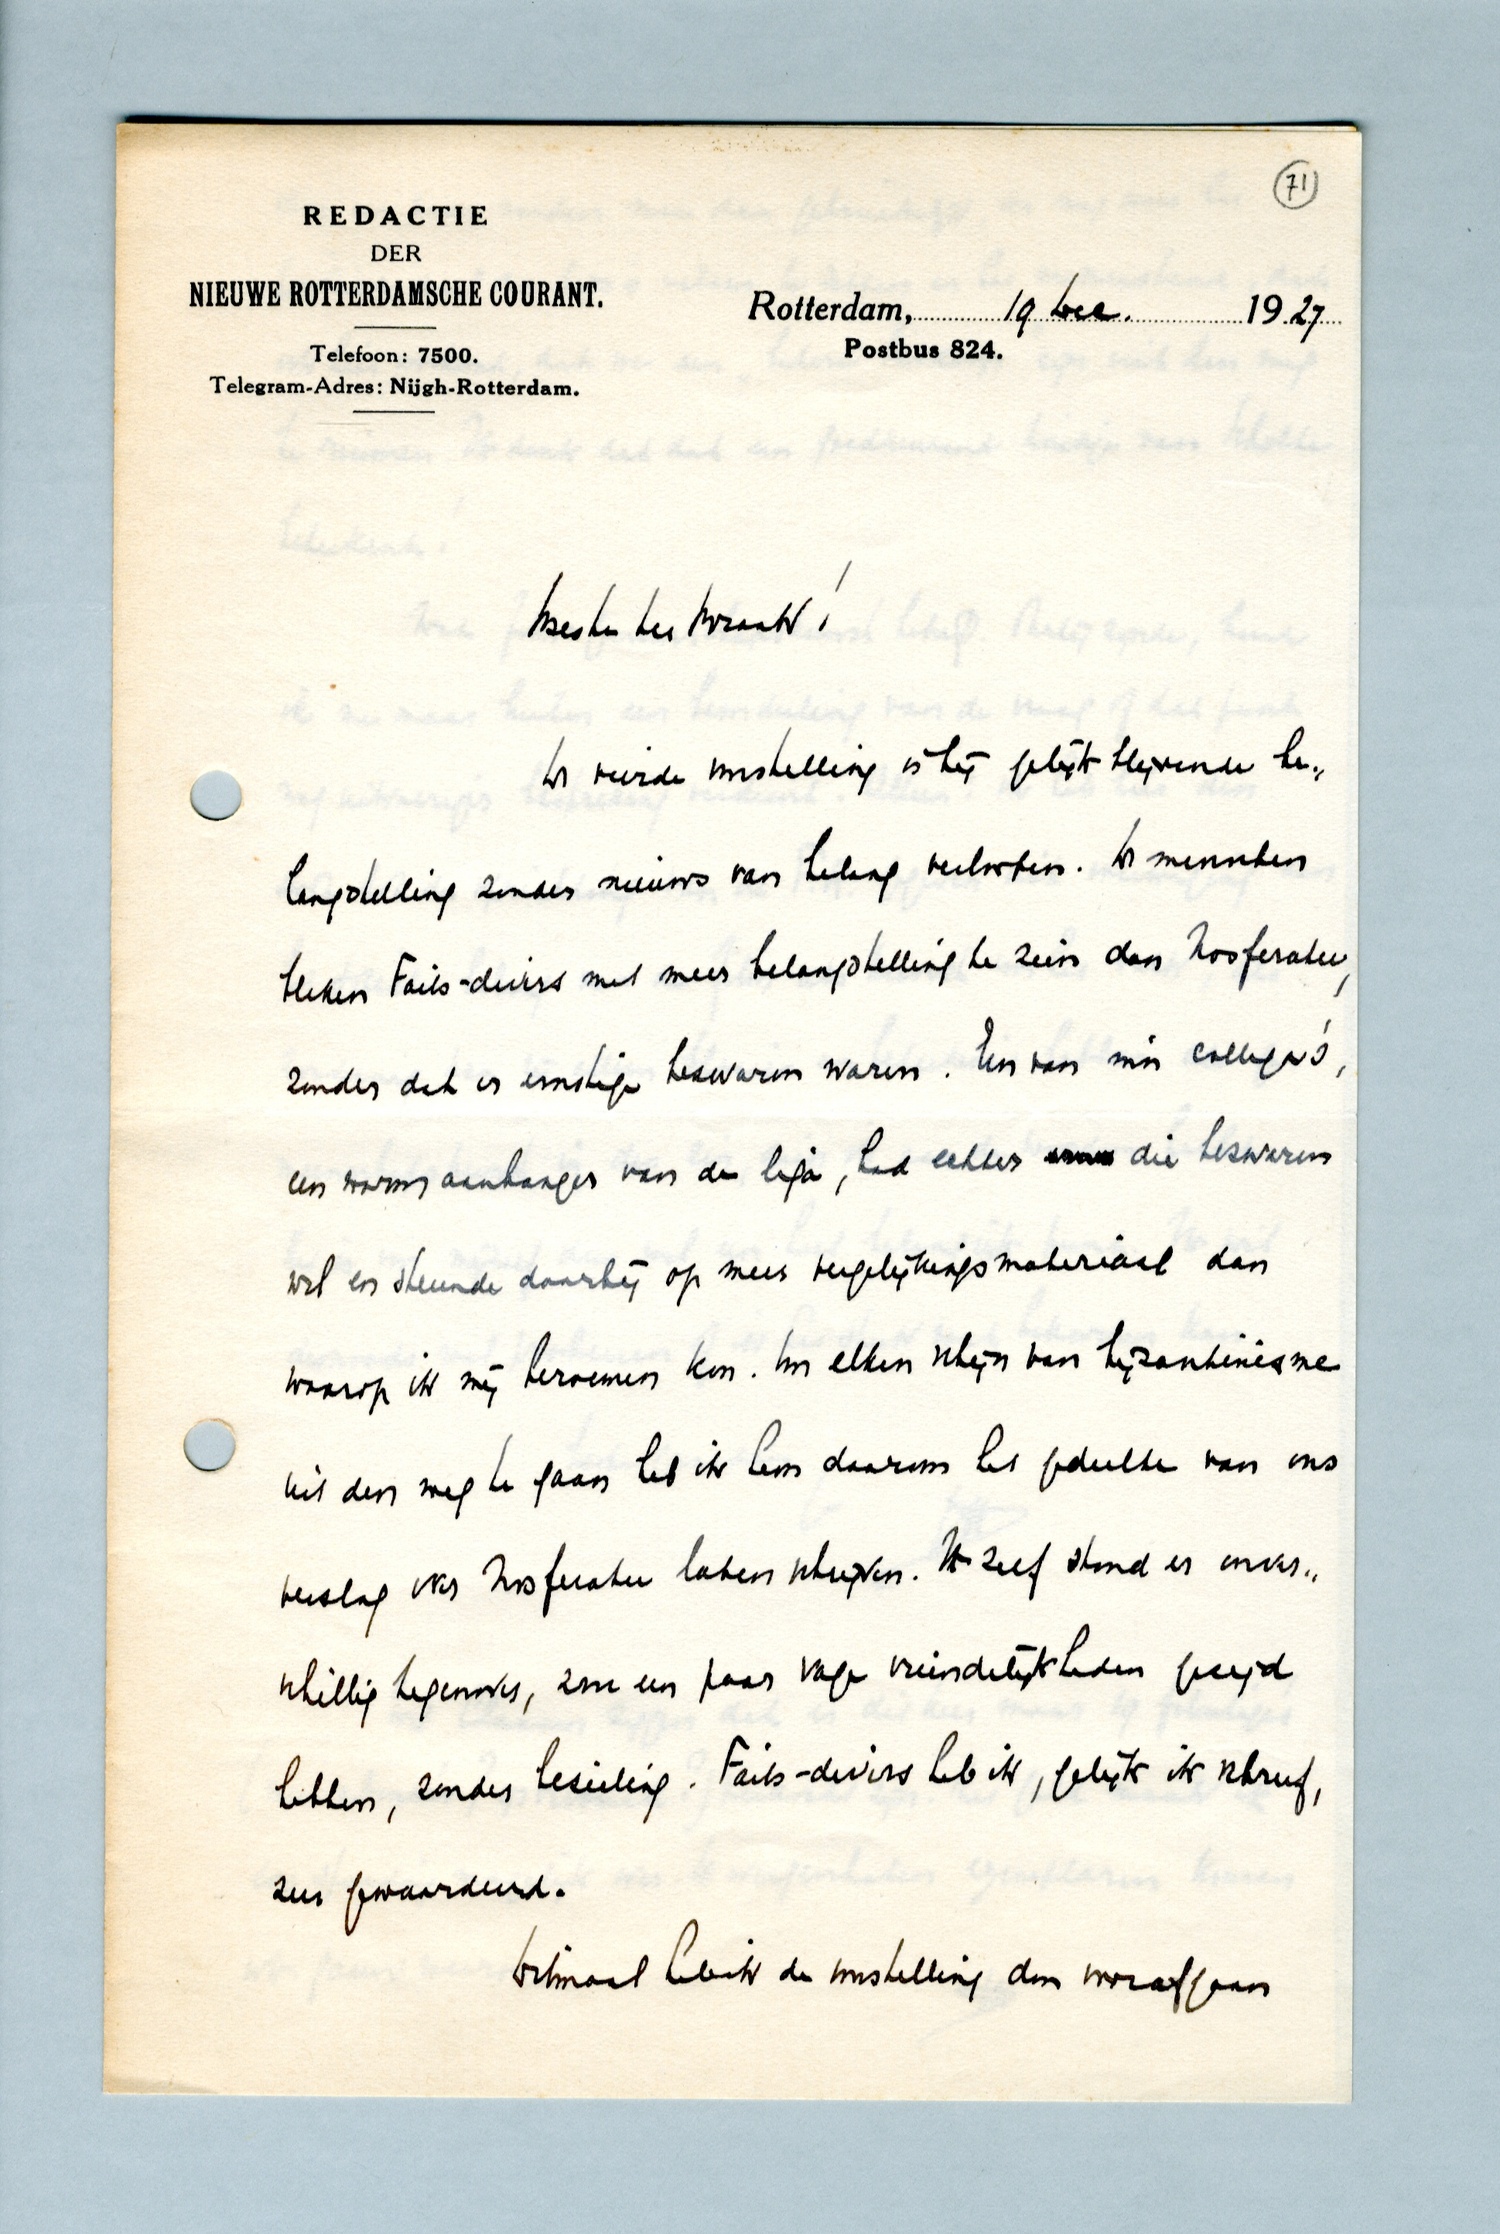 71
REDACTIE
DER
NIEUWE ROTTERDAMSCHE COURANT.
Telefoon: 7500.
Telegram-Adres: Nijgh-Rotterdam.
Rotterdam, 19 Dec. 1927
Postbus 824.
Beste ter Braak!
De vierde voorstelling is bij gelijk blijvende be„
langstelling zonder nieuws van belang verloopen. De menschen
bleken Faits-divers met meer belangstelling te zien dan Nosferatu,
zonder dat er ernstige bezwaren waren. Een van mijn collega's,
een warm aanhanger van de liga, had echter die bezwaren
wel en steunde daarbij op meer vergelijkingsmateriaal dan
waarop ik mij beroemen kon. Om elken schijn van byzantinisme
uit den weg te gaan heb ik hem daarom het gedeelte van ons
verslag over Nosferatu laten schrijven. Ik zelf stond er onver„
schillig tegenover, zou een paar vage vriendelijkheden gezegd
hebben, zonder bezieling. Faits-divers heb ik, gelijk ik schreef,
zeer gewaardeerd.
Ditmaal heb ik de voorstelling doen voorafgaan